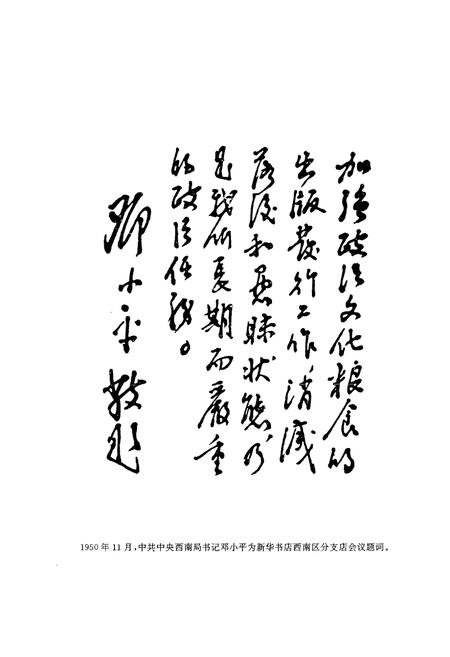 加強政治文化粮食的
出版發行工作，消滅
落後和愚昧状態，乃
是我们長期而嚴重
的政治任務。
鄧小平敬题
1950年11月，中共中央西南局书记邓小平为新华书店西南区分支店会议题词。